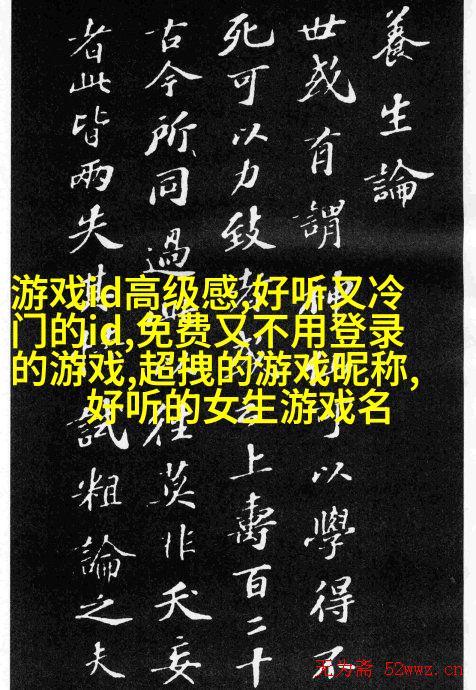 養生論
世或有謂神可以學得不
死可以力致者或云上壽百二十
古今所同過往莫非夭妄
者此皆兩失其試粗論之夫
游戏id高级感,好听又冷
门的id,免费又不用登录
的游戏,超拽的游戏昵称,
好听的女生游戏名
无为斋 52wwz.cn